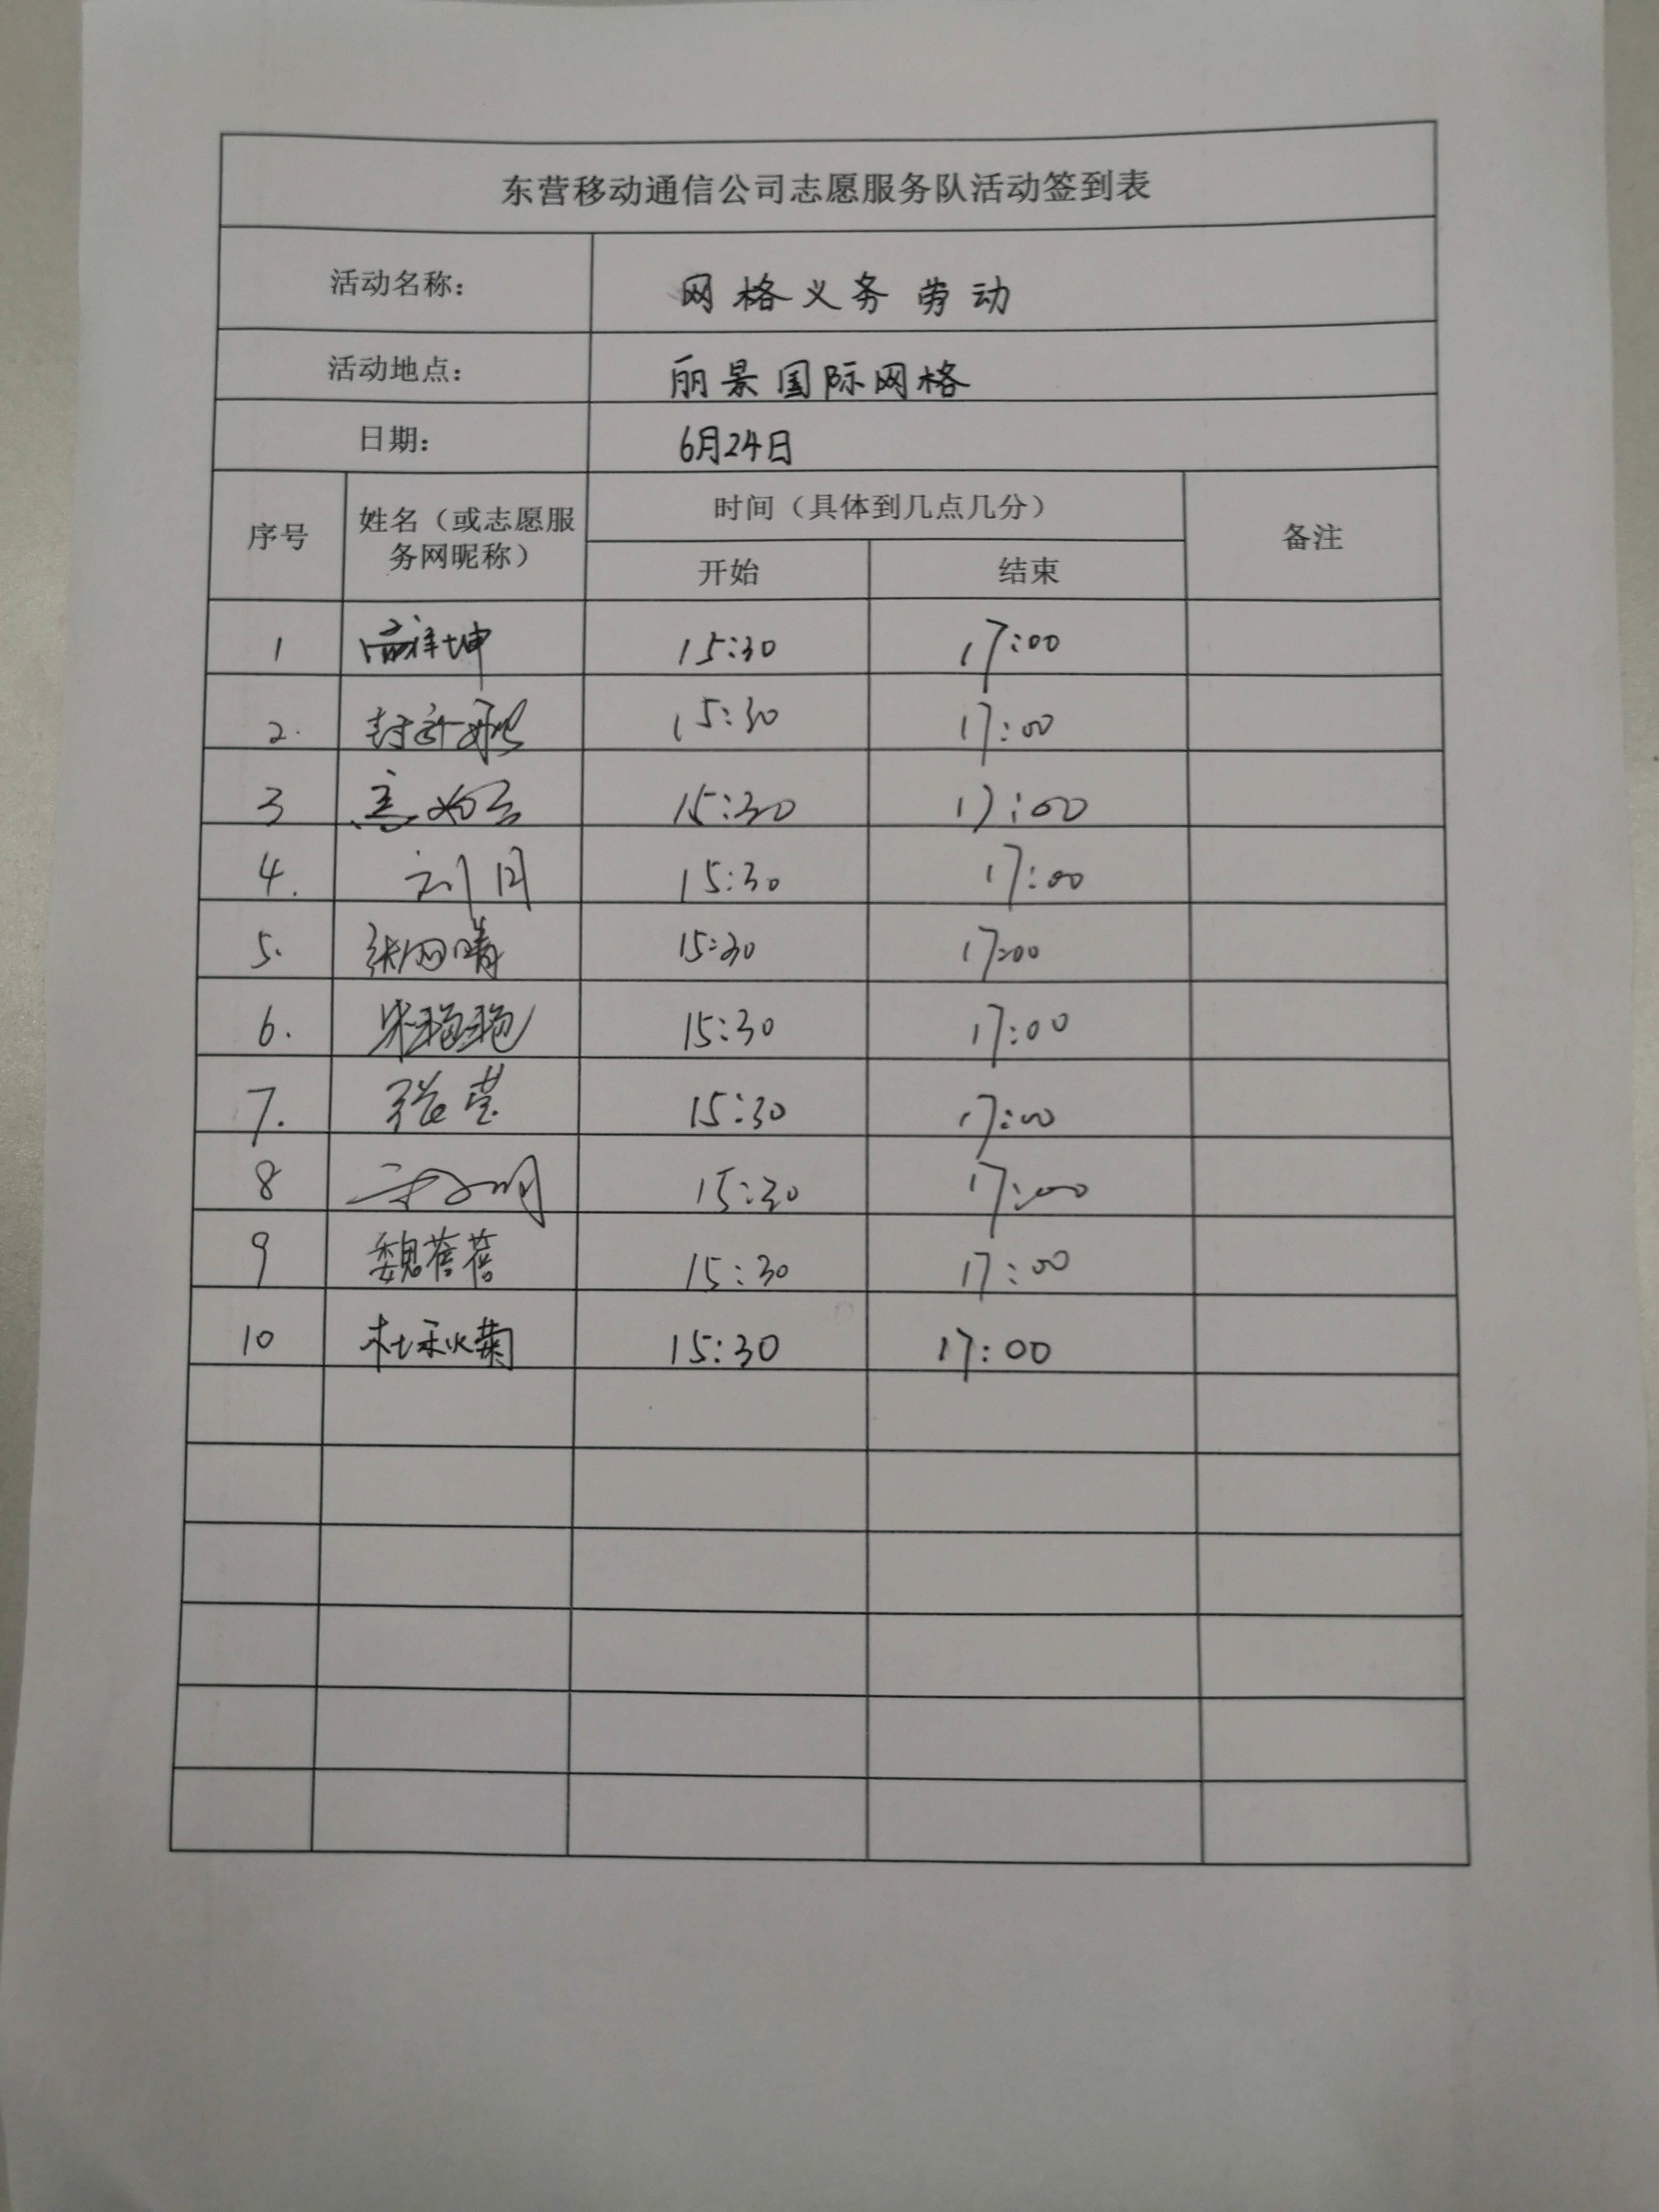 东营移动通信公司志愿服务队活动签到表
活动名称: 网格义务劳动
活动地点: 丽景国际网格
日期: 6月24日
序号 姓名（或志愿服务网昵称） 时间（具体到几点几分） 备注
开始 结束
1 高祥坤 15:30 17:00
2. 15:30 17:00
3 15:30 17:00
4. 刘 15:30 17:00
5. 张网晴 15:30 17:00
6. 宋艳艳 15:30 17:00
7. 张莹 15:30 17:00
8 15:30 17:00
9 魏蓓蓓 15:30 17:00
10 杜秋菊 15:30 17:00